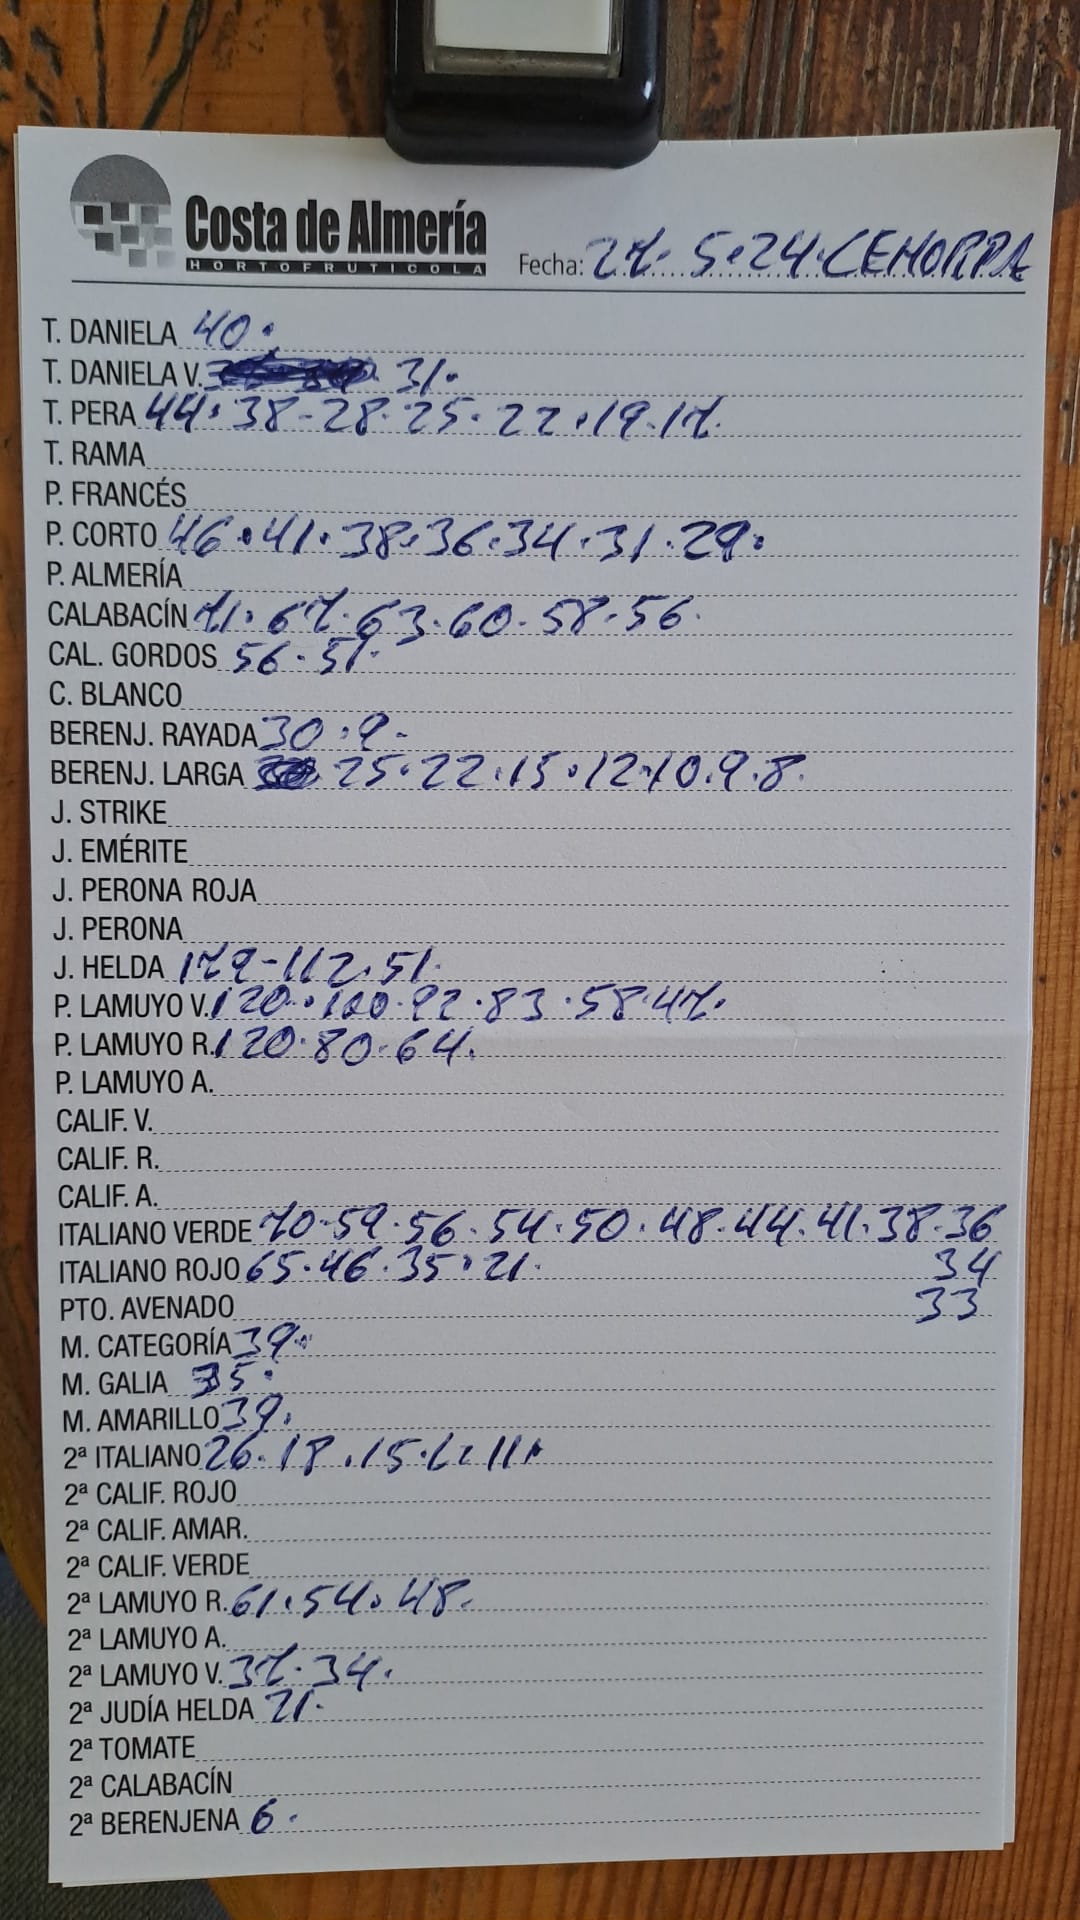 Costa de Almería
HORTOFRUTICOLA
Fecha: 27.5.24. CEHORPA
T. DANIELA 40.
T. DANIELA V. 31.
T. PERA 44.38-28.25.22.19.17.
T. RAMA
P. FRANCÉS
P. CORTO 46.41.38.36.34.31.29.
P. ALMERÍA
CALABACÍN 71.67.63.60.58.56.
CAL. GORDOS 56.51.
C. BLANCO
BERENJ. RAYADA 30.9.
BERENJ. LARGA 25.22.15.12.10.9.8.
J. STRIKE
J. EMÉRITE
J. PERONA ROJA
J. PERONA
J. HELDA 179-112.51.
P. LAMUYO V. 120.100.92.83.58.47.
P. LAMUYO R. 120.80.64.
P. LAMUYO A.
CALIF. V.
CALIF. R.
CALIF. A.
ITALIANO VERDE 70.59.56.54.50.48.44.41.38.36
ITALIANO ROJO 65.46.35.21. 34
PTO. AVENADO 33
M. CATEGORÍA 39.
M. GALIA 35.
M. AMARILLO 39.
2ª ITALIANO 26.18.15. 11.
2ª CALIF. ROJO
2ª CALIF. AMAR.
2ª CALIF. VERDE
2ª LAMUYO R. 61.54.48.
2ª LAMUYO A.
2ª LAMUYO V. 37.34.
2ª JUDÍA HELDA 21.
2ª TOMATE
2ª CALABACÍN
2ª BERENJENA 6.